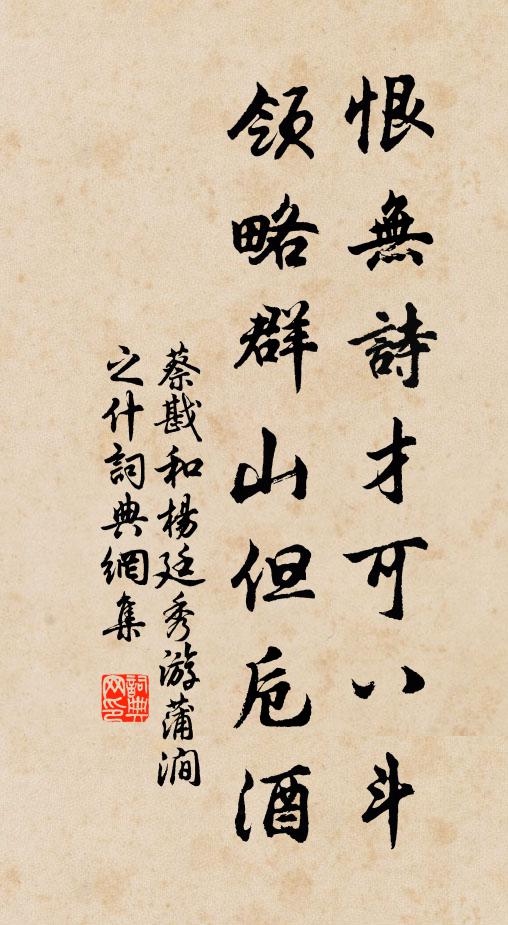 恨無詩才可八斗
領略群山但卮酒
蔡戡和楊廷秀游蒲澗
之什詞典網集
詞典
网印